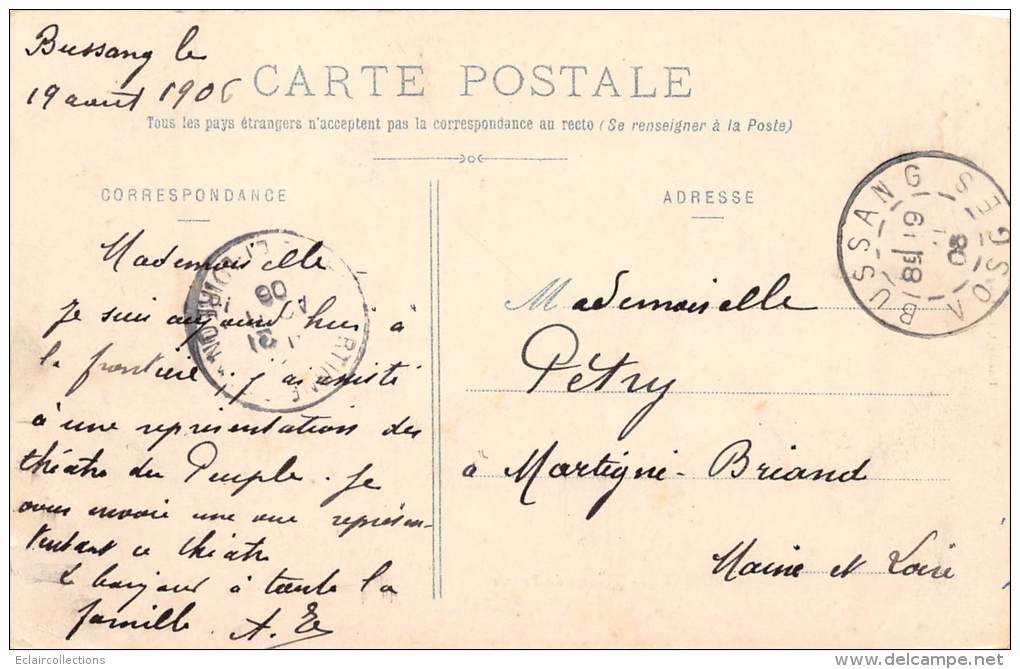 Bussang le
19 août 1906
CARTE POSTALE
Tous les pays étrangers n'acceptent pas la correspondance au recto (Se renseigner à la Poste)
CORRESPONDANCE
ADRESSE
Mademoiselle
Je suis aujourd'hui à
la frontière. j'ai assisté
à une représentation du
théâtre du Peuple. Je
vous envoie une vue représen-
tant ce théâtre
bonjour à toute la
famille. A. E
Mademoiselle
Pétry
à Martigné-Briand
Maine et Loire
BUSSANG VOSGES
19
8
06
21
06
Eclaircollections
delcampe.net